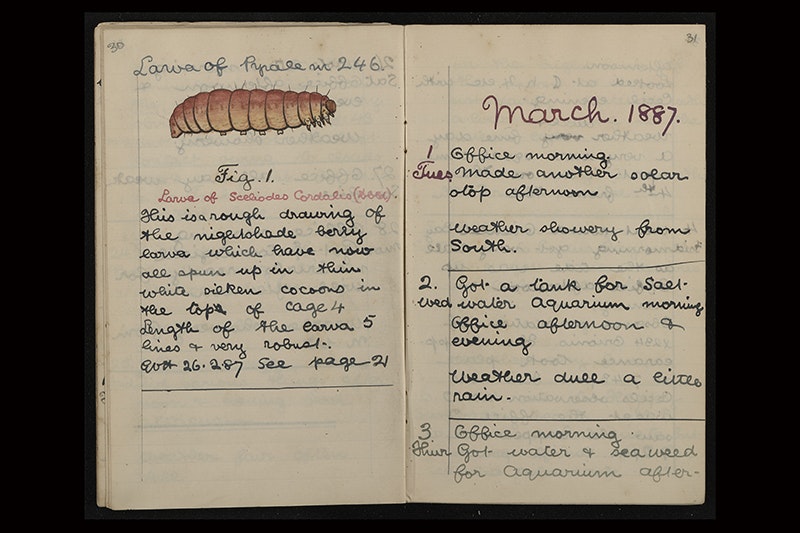 30
Larva of Pyrale in 246.
Fig. 1.
Larva of Sceliodes Cordalis
This is a rough drawing of
the nightshade berry
larva which have now
all spun up in thin
white silken cocoons in
the top of cage 4
Length of the larva 5
lines & very robust.
26.2.87 See page 21
31
March. 1887.
1 Office morning.
Tues Made another solar
stop afternoon
Weather showery from
South.
2. Got a tank for Salt-
wed water Aquarium morning
Office afternoon &
evening
Weather dull a little
rain.
3 Office morning.
Thur Got water & seaweed
for Aquarium after-